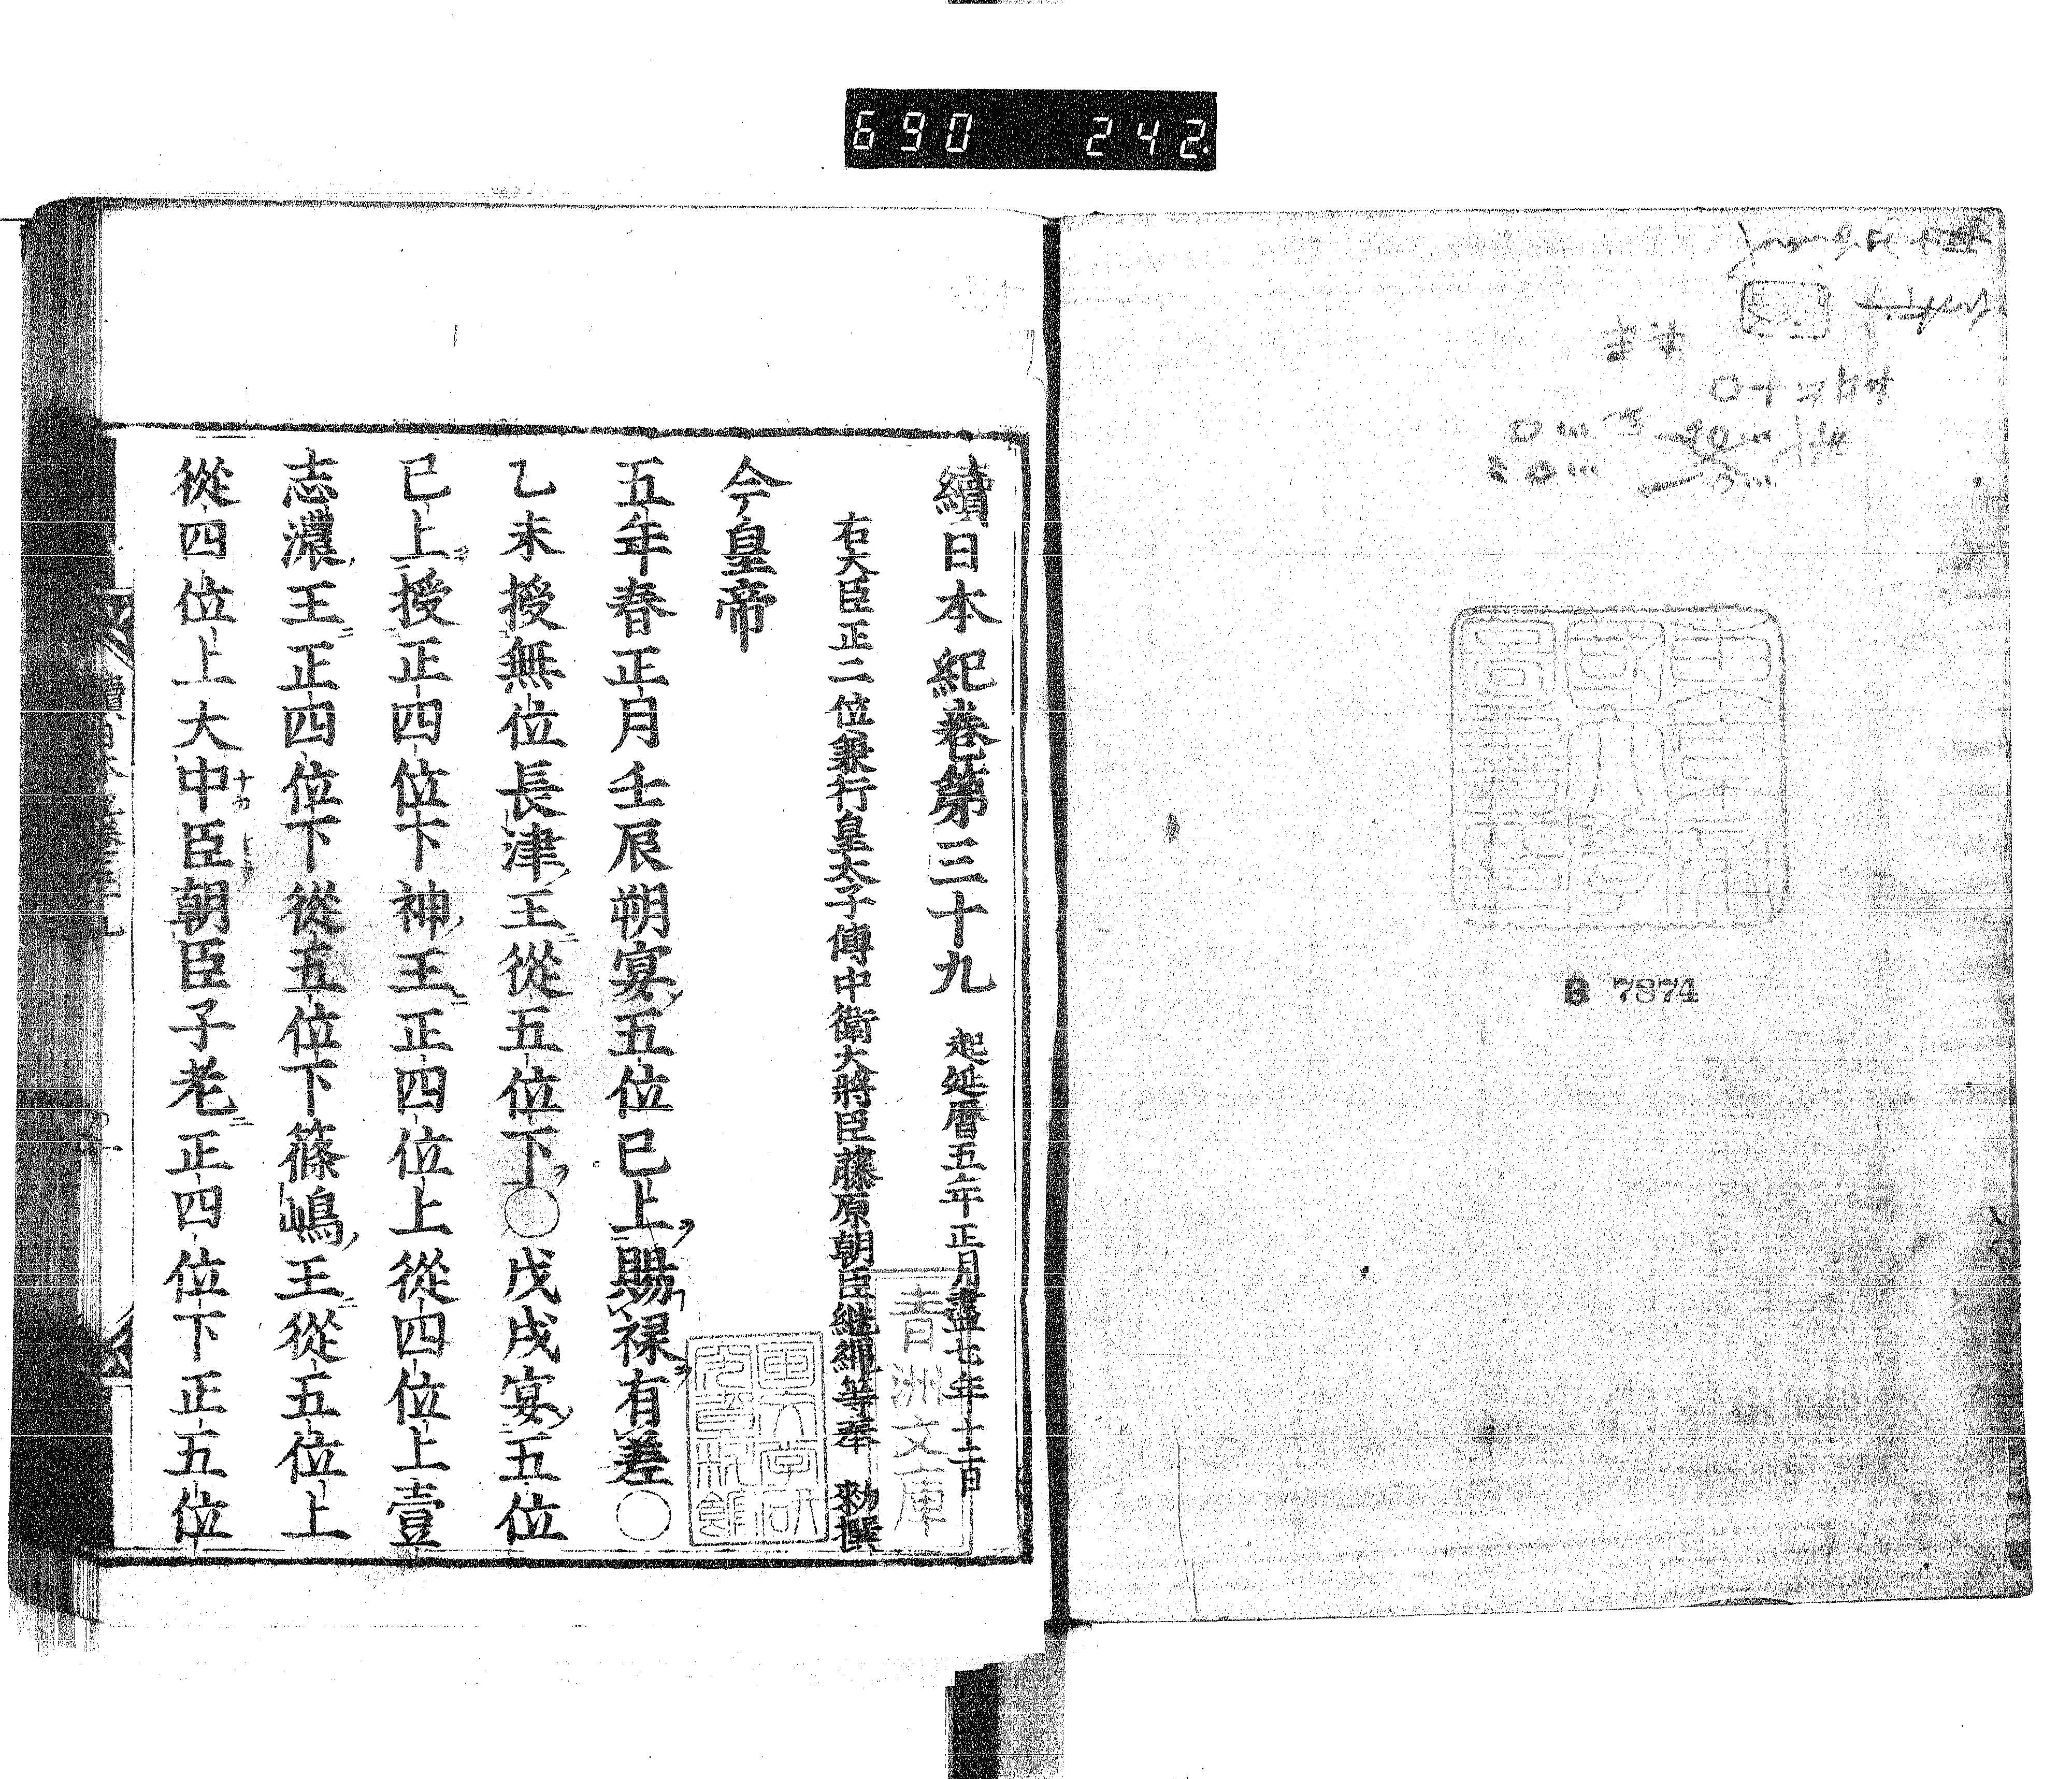 690 242
續日本紀卷第三十九 起延曆五年正月盡七年十二月
右大臣正二位兼行皇太子傅中衛大將臣藤原朝臣繼繩等奉 勅撰
今皇帝
五年春正月壬辰朔宴五位已上賜祿有差○
乙未授無位長津王從五位下○戊戌宴五位
已上授正四位下神王正四位上從四位上壹
志濃王正四位下從五位下篠嶋王從五位上
從四位上大中臣朝臣子老正四位下正五位
青洲文庫
B 7874